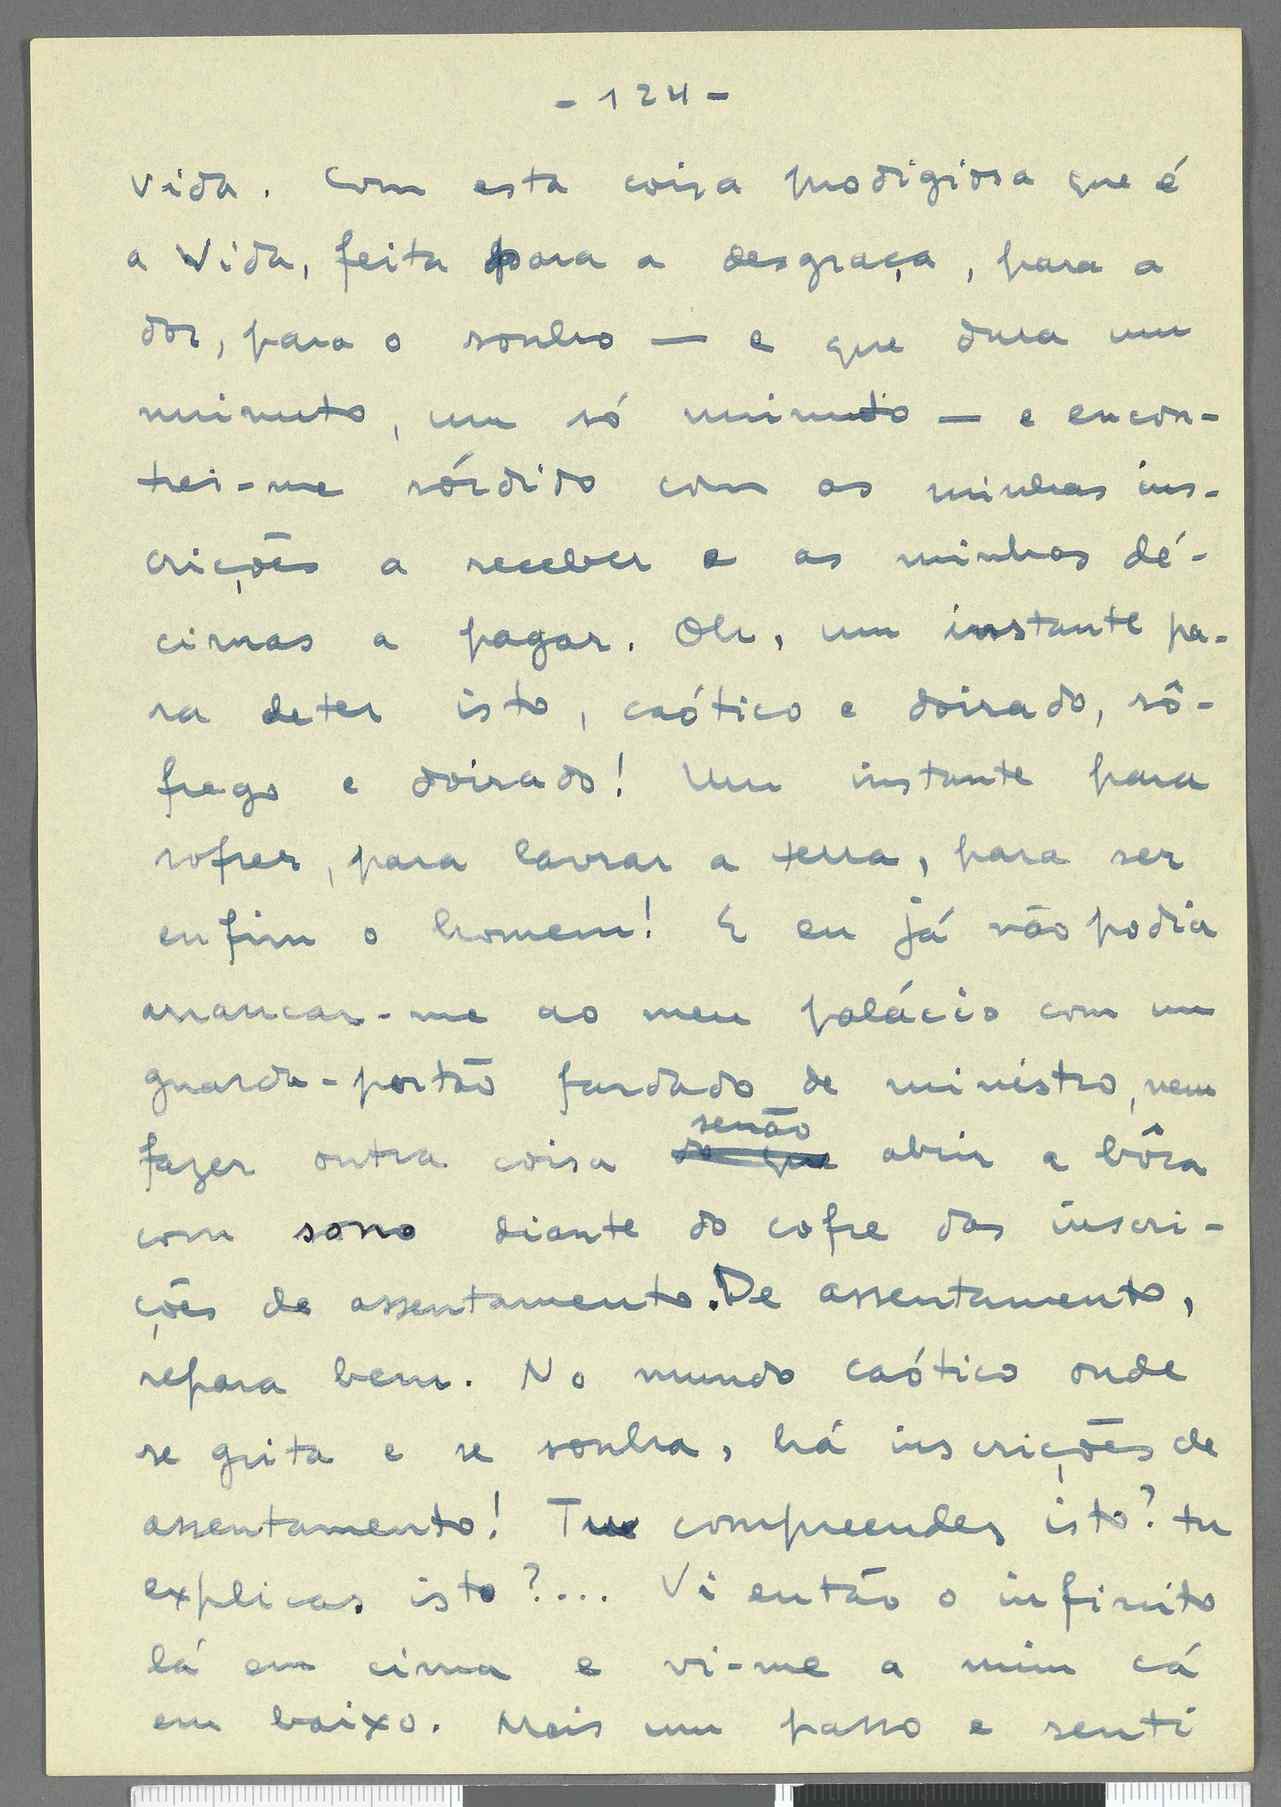 - 124 -
vida. Com esta coisa prodigiosa que é
a Vida, feita para a desgraça, para a
dor, para o sonho — e que dura um
minuto, um só minuto — e encon-
trei-me sórdido com as minhas ins-
crições a receber e as minhas dé-
cimas a pagar. Oh, um instante pa-
ra deter isto, caótico e doirado, sô-
frego e doirado! Um instante para
sofrer, para lavrar a terra, para ser
enfim o homem! E eu já não podia
arrancar-me ao meu palácio com um
guarda-portão fardado de ministro, nem
senão
fazer outra coisa so que abrir a bôca
com sono diante do cofre das inscri-
ções de assentamento. De assentamento,
repara bem. No mundo caótico onde
se grita e se sonha, há inscrições de
assentamento! Tu compreendes isto? tu
explicas isto?... Vi então o infinito
lá em cima e vi-me a mim cá
em baixo. Mais um passo e senti